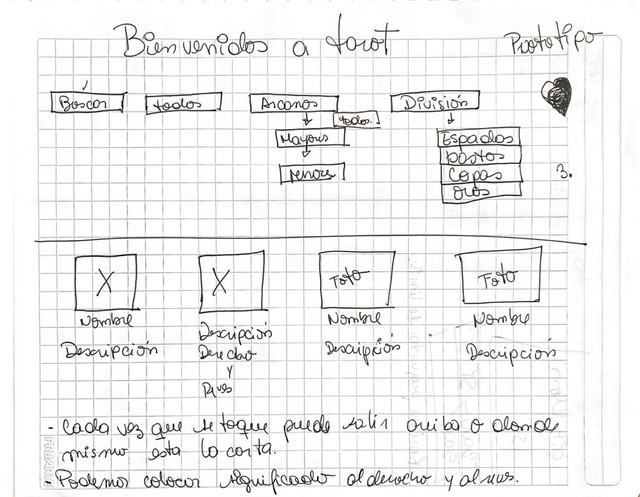 Bienvenidos a tarot
Prototipo
Buscar
todos
Arcanos
División
todos.
Mayores
menores
Espadas
bastos
Copas
oros
3.
X
X
Foto
Foto
Nombre
Descripción
Descripción
Derecho
y
Revés
Nombre
Descripción
Nombre
Descripción
- Cada vez que se toque puede salir arriba o donde
mismo esta la carta.
- Podemos colocar significado al derecho y al revés.